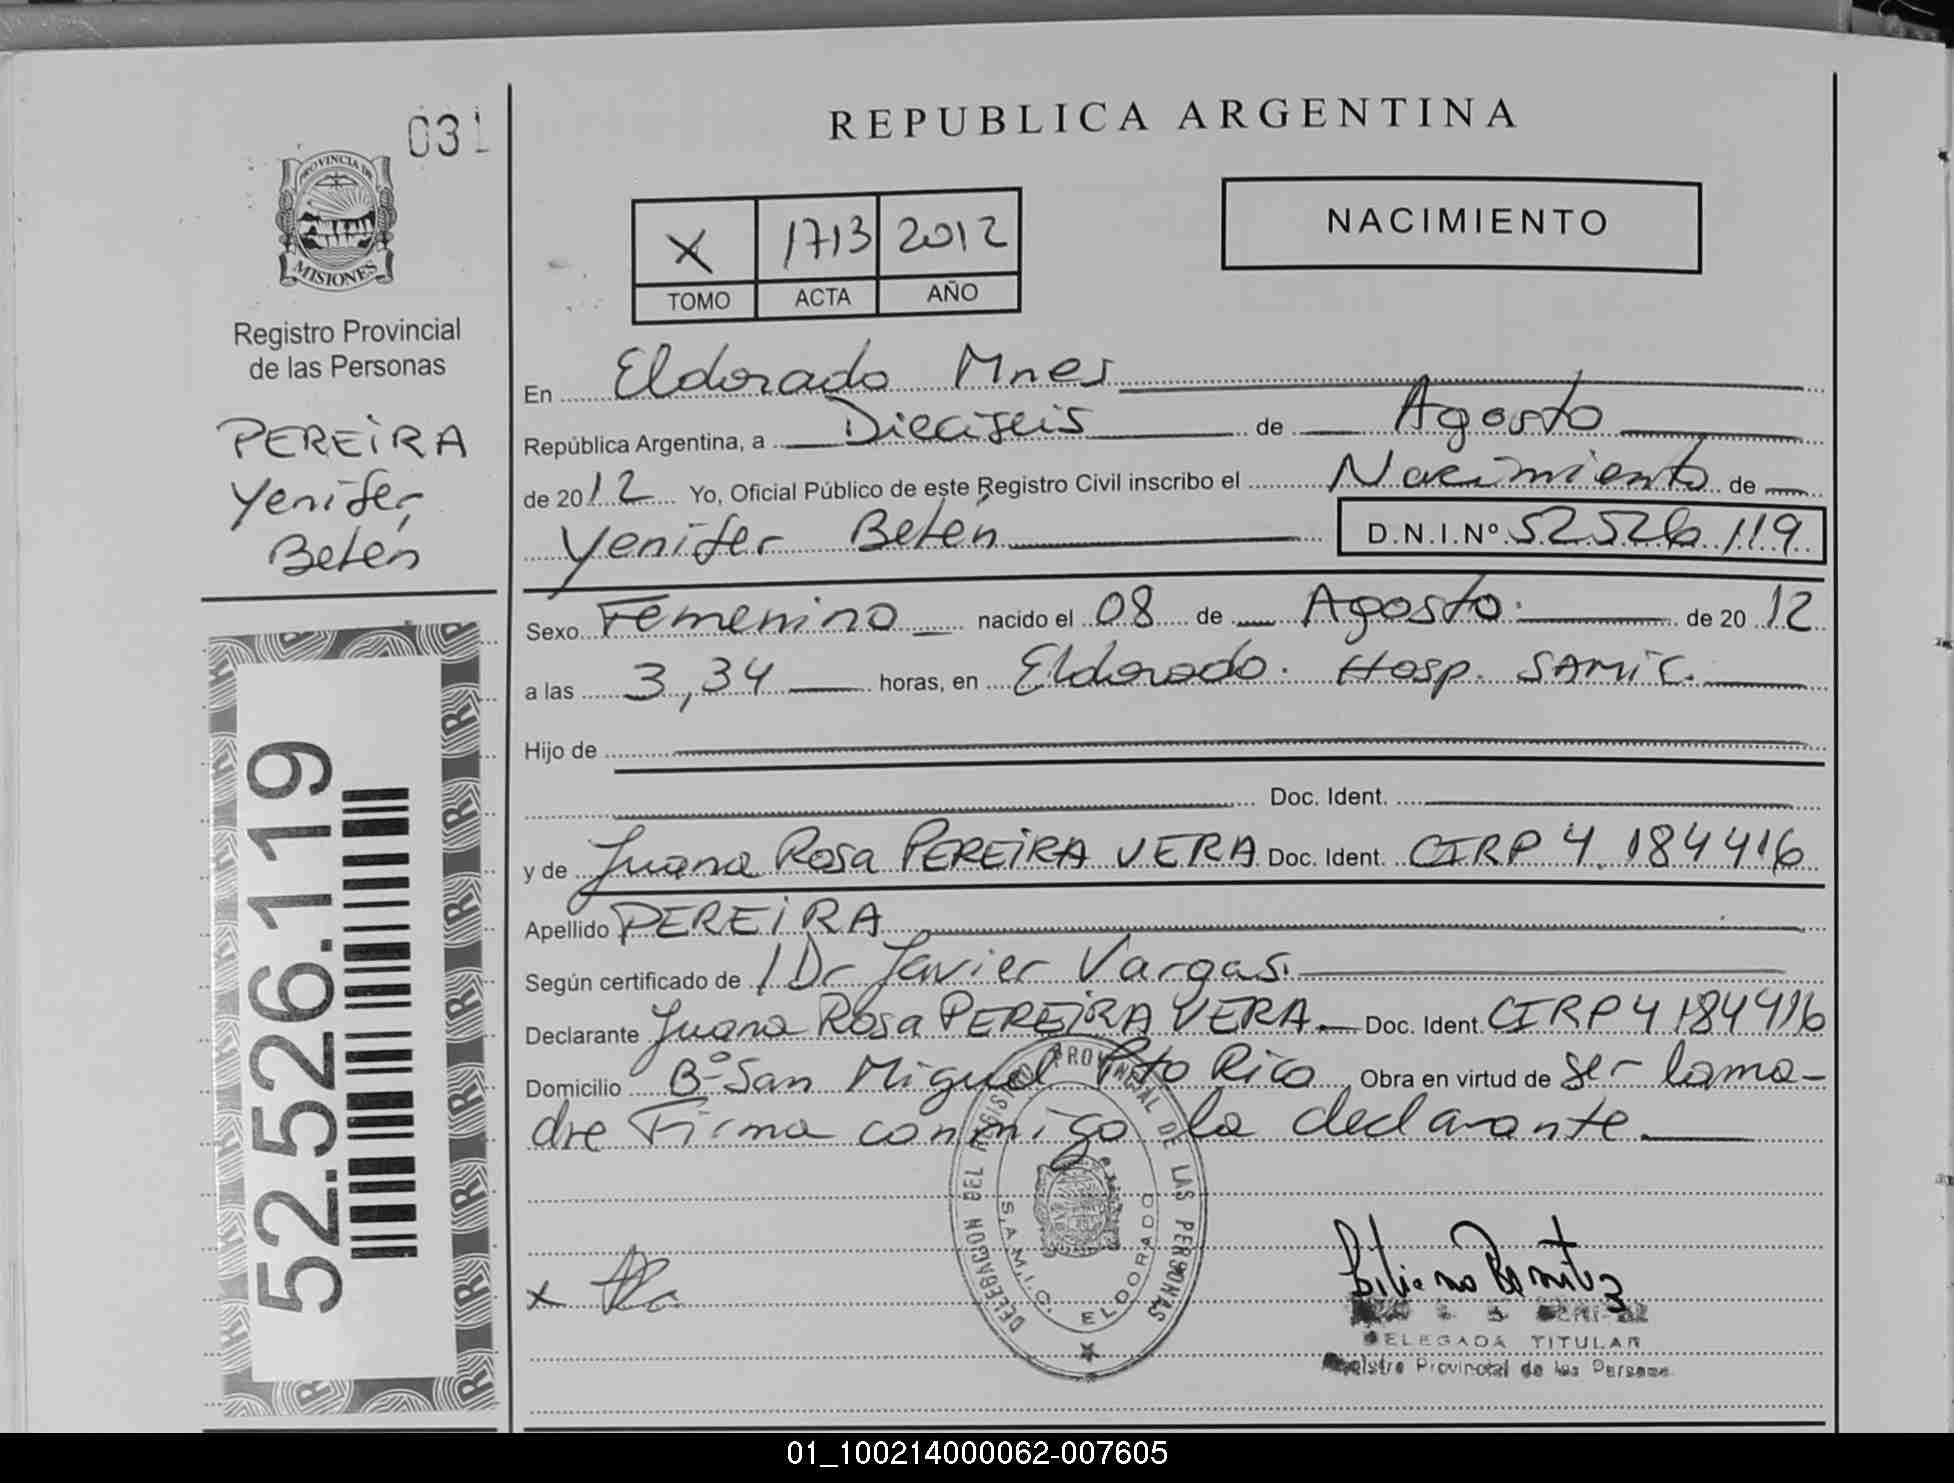 031
PROVINCIA DE
MISIONES
Registro Provincial
de las Personas
PEREIRA
Yenifer
Belén
52.526.119
REPUBLICA ARGENTINA
X 1713 2012
TOMO ACTA AÑO
NACIMIENTO
En Eldorado Mnes
República Argentina, a Dieciseis de Agosto
de 2012 Yo, Oficial Público de este Registro Civil inscribo el Nacimiento de
Yenifer Belén D.N.I.Nº 52 526 119
Sexo Femenino nacido el 08 de Agosto de 2012
a las 3,34 horas, en Eldorado. Hosp. SAMIC.
Hijo de
Doc. Ident.
y de Juana Rosa PEREIRA VERA Doc. Ident. CIRP 4.184416
Apellido PEREIRA
Según certificado de Dr Javier Vargas.
Declarante Juana Rosa PEREIRA VERA Doc. Ident. CIRP 4184416
Domicilio Bº San Miguel Pto Rico Obra en virtud de ser la ma-
dre Firma conmigo la declarante.
DELEGACION DEL REGISTRO PROVINCIAL DE LAS PERSONAS
S.A.M.I.C. ELDORADO
x
Liliana Benitez
DELEGADA TITULAR
Registro Provincial de las Personas
01_100214000062-007605